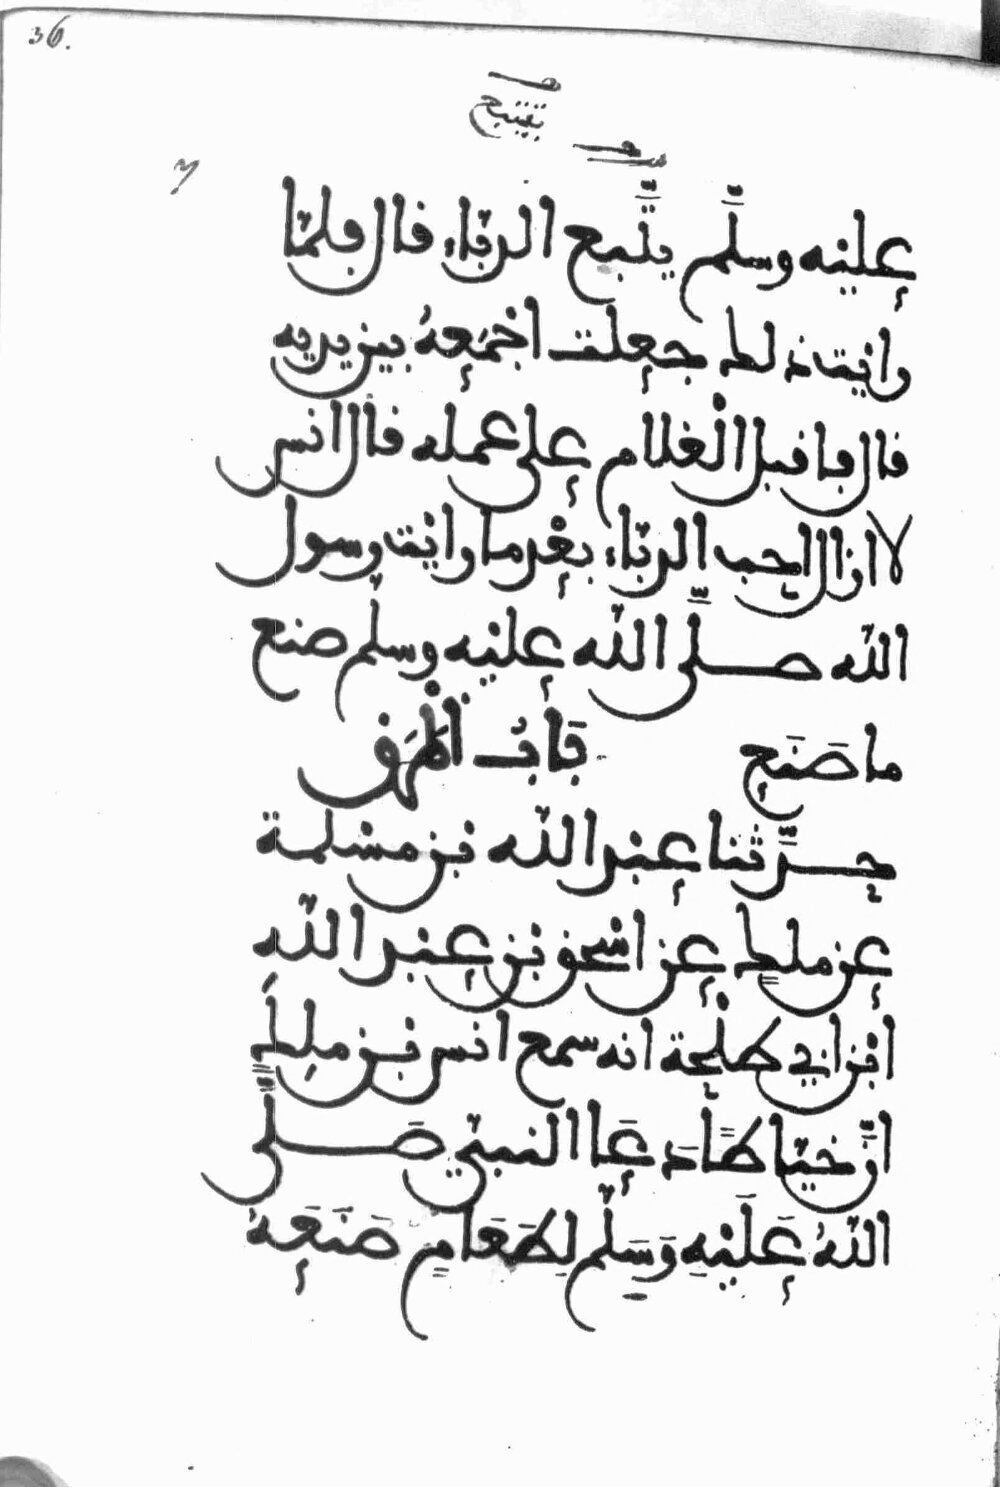 36.
يتتبع
عليه وسلم يتبع الدباء قال فلما
رايت ذلك جعلت اجمعه بين يديه
قال فاقبل الغلام على عمله قال انس
لا ازال احب الدباء بعد ما رايت رسول
الله صلى الله عليه وسلم صنع
ما صنع باب المرق
حدثنا عبد الله بن مسلمة
عن ملك عن اسحق بن عبد الله
ابن ابي طلحة انه سمع انس بن ملك
ان خياطا دعا النبي صلى
الله عليه وسلم لطعام صنعه